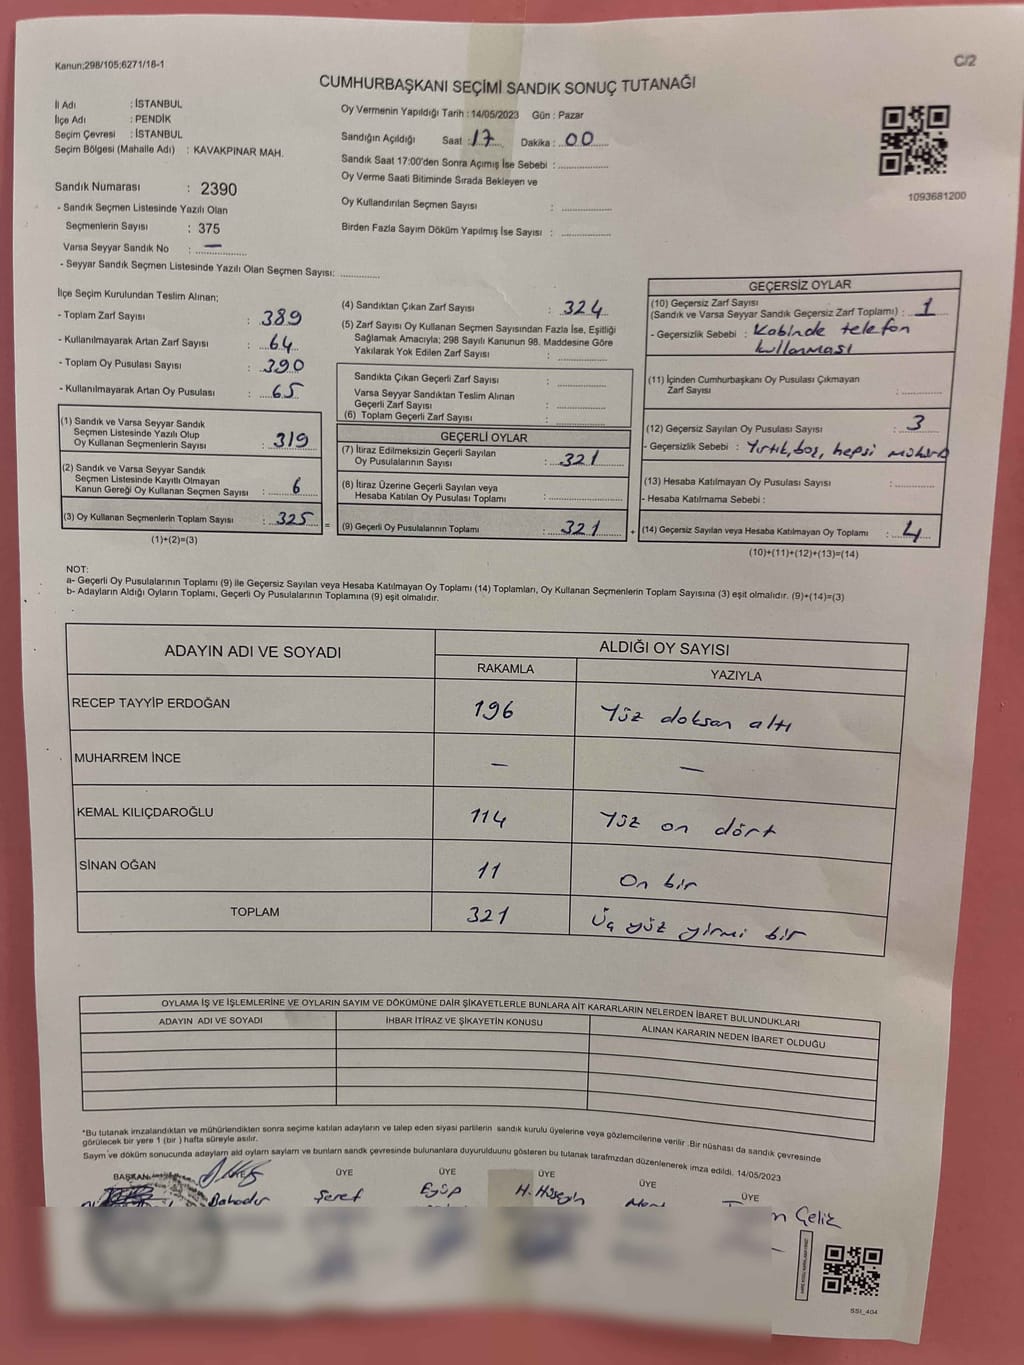 Kanun:298/105;6271/16-1
C/2
CUMHURBAŞKANI SEÇİMİ SANDIK SONUÇ TUTANAĞI
İl Adı : İSTANBUL
İlçe Adı : PENDİK
Seçim Çevresi : İSTANBUL
Seçim Bölgesi (Mahalle Adı) : KAVAKPINAR MAH.
Oy Vermenin Yapıldığı Tarih : 14/05/2023 Gün : Pazar
Sandığın Açıldığı Saat : 17 Dakika : 00
Sandık Saat 17:00'den Sonra Açımış İse Sebebi : ..............
Oy Verme Saati Bitiminde Sırada Bekleyen ve
Oy Kullandırılan Seçmen Sayısı : ..............
Birden Fazla Sayım Döküm Yapılmış İse Sayısı : ..............
1093681200
Sandık Numarası : 2390
- Sandık Seçmen Listesinde Yazılı Olan
Seçmenlerin Sayısı : 375
Varsa Seyyar Sandık No : —
- Seyyar Sandık Seçmen Listesinde Yazılı Olan Seçmen Sayısı: ...........
İlçe Seçim Kurulundan Teslim Alınan;
- Toplam Zarf Sayısı : 389
- Kullanılmayarak Artan Zarf Sayısı : 64
- Toplam Oy Pusulası Sayısı : 390
- Kullanılmayarak Artan Oy Pusulası : 65
(1) Sandık ve Varsa Seyyar Sandık
Seçmen Listesinde Yazılı Olup
Oy Kullanan Seçmenlerin Sayısı : 319
(2) Sandık ve Varsa Seyyar Sandık
Seçmen Listesinde Kayıtlı Olmayan
Kanun Gereği Oy Kullanan Seçmen Sayısı : 6
(3) Oy Kullanan Seçmenlerin Toplam Sayısı : 325 =
(1)+(2)=(3)
(4) Sandıktan Çıkan Zarf Sayısı : 324
(5) Zarf Sayısı Oy Kullanan Seçmen Sayısından Fazla İse, Eşitliği
Sağlamak Amacıyla; 298 Sayılı Kanunun 98. Maddesine Göre
Yakılarak Yok Edilen Zarf Sayısı : ..............
Sandıkta Çıkan Geçerli Zarf Sayısı : ..............
Varsa Seyyar Sandıktan Teslim Alınan
Geçerli Zarf Sayısı : ..............
(6) Toplam Geçerli Zarf Sayısı : ..............
GEÇERLİ OYLAR
(7) İtiraz Edilmeksizin Geçerli Sayılan
Oy Pusulalarının Sayısı : 321
(8) İtiraz Üzerine Geçerli Sayılan veya
Hesaba Katılan Oy Pusulası Toplamı : ..............
(9) Geçerli Oy Pusulalarının Toplamı : 321 +
GEÇERSİZ OYLAR
(10) Geçersiz Zarf Sayısı
(Sandık ve Varsa Seyyar Sandık Geçersiz Zarf Toplamı) : 1
- Geçersizlik Sebebi : Kabinde telefon
kullanması
(11) İçinden Cumhurbaşkanı Oy Pusulası Çıkmayan
Zarf Sayısı : ..............
(12) Geçersiz Sayılan Oy Pusulası Sayısı : 3
- Geçersizlik Sebebi : Yırtık, boş, hepsi
(13) Hesaba Katılmayan Oy Pusulası Sayısı : ..............
- Hesaba Katılmama Sebebi :
(14) Geçersiz Sayılan veya Hesaba Katılmayan Oy Toplamı : 4
(10)+(11)+(12)+(13)=(14)
NOT:
a- Geçerli Oy Pusulalarının Toplamı (9) ile Geçersiz Sayılan veya Hesaba Katılmayan Oy Toplamı (14) Toplamları, Oy Kullanan Seçmenlerin Toplam Sayısına (3) eşit olmalıdır. (9)+(14)=(3)
b- Adayların Aldığı Oyların Toplamı, Geçerli Oy Pusulalarının Toplamına (9) eşit olmalıdır.
ADAYIN ADI VE SOYADI
ALDIĞI OY SAYISI
RAKAMLA YAZIYLA
RECEP TAYYİP ERDOĞAN 196 Yüz doksan altı
MUHARREM İNCE — —
KEMAL KILIÇDAROĞLU 114 Yüz on dört
SİNAN OĞAN 11 On bir
TOPLAM 321 Üç yüz yirmi bir
OYLAMA İŞ VE İŞLEMLERİNE VE OYLARIN SAYIM VE DÖKÜMÜNE DAİR ŞİKAYETLERLE BUNLARA AİT KARARLARIN NELERDEN İBARET BULUNDUKLARI
ADAYIN ADI VE SOYADI İHBAR İTİRAZ VE ŞİKAYETİN KONUSU ALINAN KARARIN NEDEN İBARET OLDUĞU
*Bu tutanak imzalandıktan ve mühürlendikten sonra seçime katılan adayların ve talep eden siyasi partilerin sandık kurulu üyelerine veya gözlemcilerine verilir .Bir nüshası da sandık çevresinde
görülecek bir yere 1 (bir ) hafta süreyle asılır.
Sayım ve döküm sonucunda adayların ald oyların sayılam ve bunların sandık çevresinde bulunanlara duyurulduunu gösteren bu tutanak tarafmzdan düzenlenerek imza edildi. 14/05/2023
BAŞKAN ÜYE ÜYE ÜYE ÜYE ÜYE
Bahadır Şeref Eyüp H. Hüseyin
Çelik
SSI_404